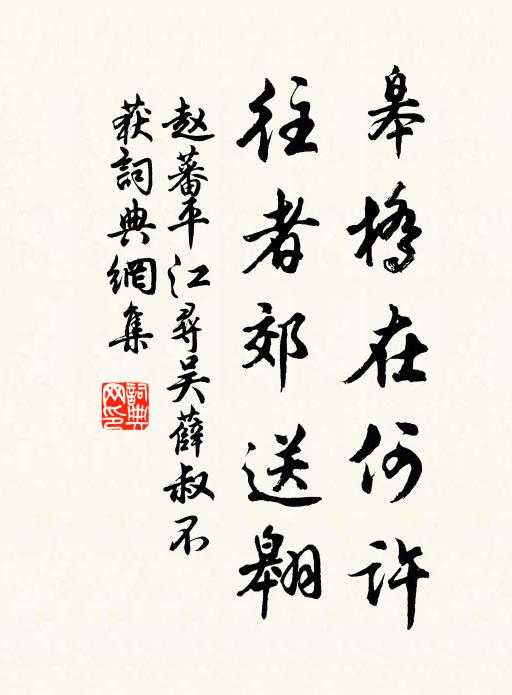 皋橋在何許
往者郊送翱
赵蕃平江尋吴薛叔不
获詞典網集
詞典网印